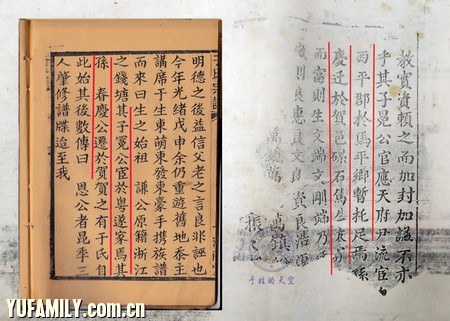 教實賁賴之而加封加謚不亦
乎其子冕公官應天府尹流宦
西平郡於馬平鄉暫托足焉孫
慶迁於賀邑石
而富則生文端文剛端乃
川良惠良文良
于姓的天空
明德之後益信父老之言良非誣也
今年光緒戊申余仍重遊舊地泰主
講席于生東萌東發東豪手携族譜
而來曰生之始祖 謙公原籍浙江
之錢塘其子冕公宦於粵遂家焉其
孫 春慶公遷於賀賀之有于氏自
此始其後數傳曰 恩公者昆季三
人肇修譜牒迨至我
YUFAMILY.COM
YUFAMILY.CN